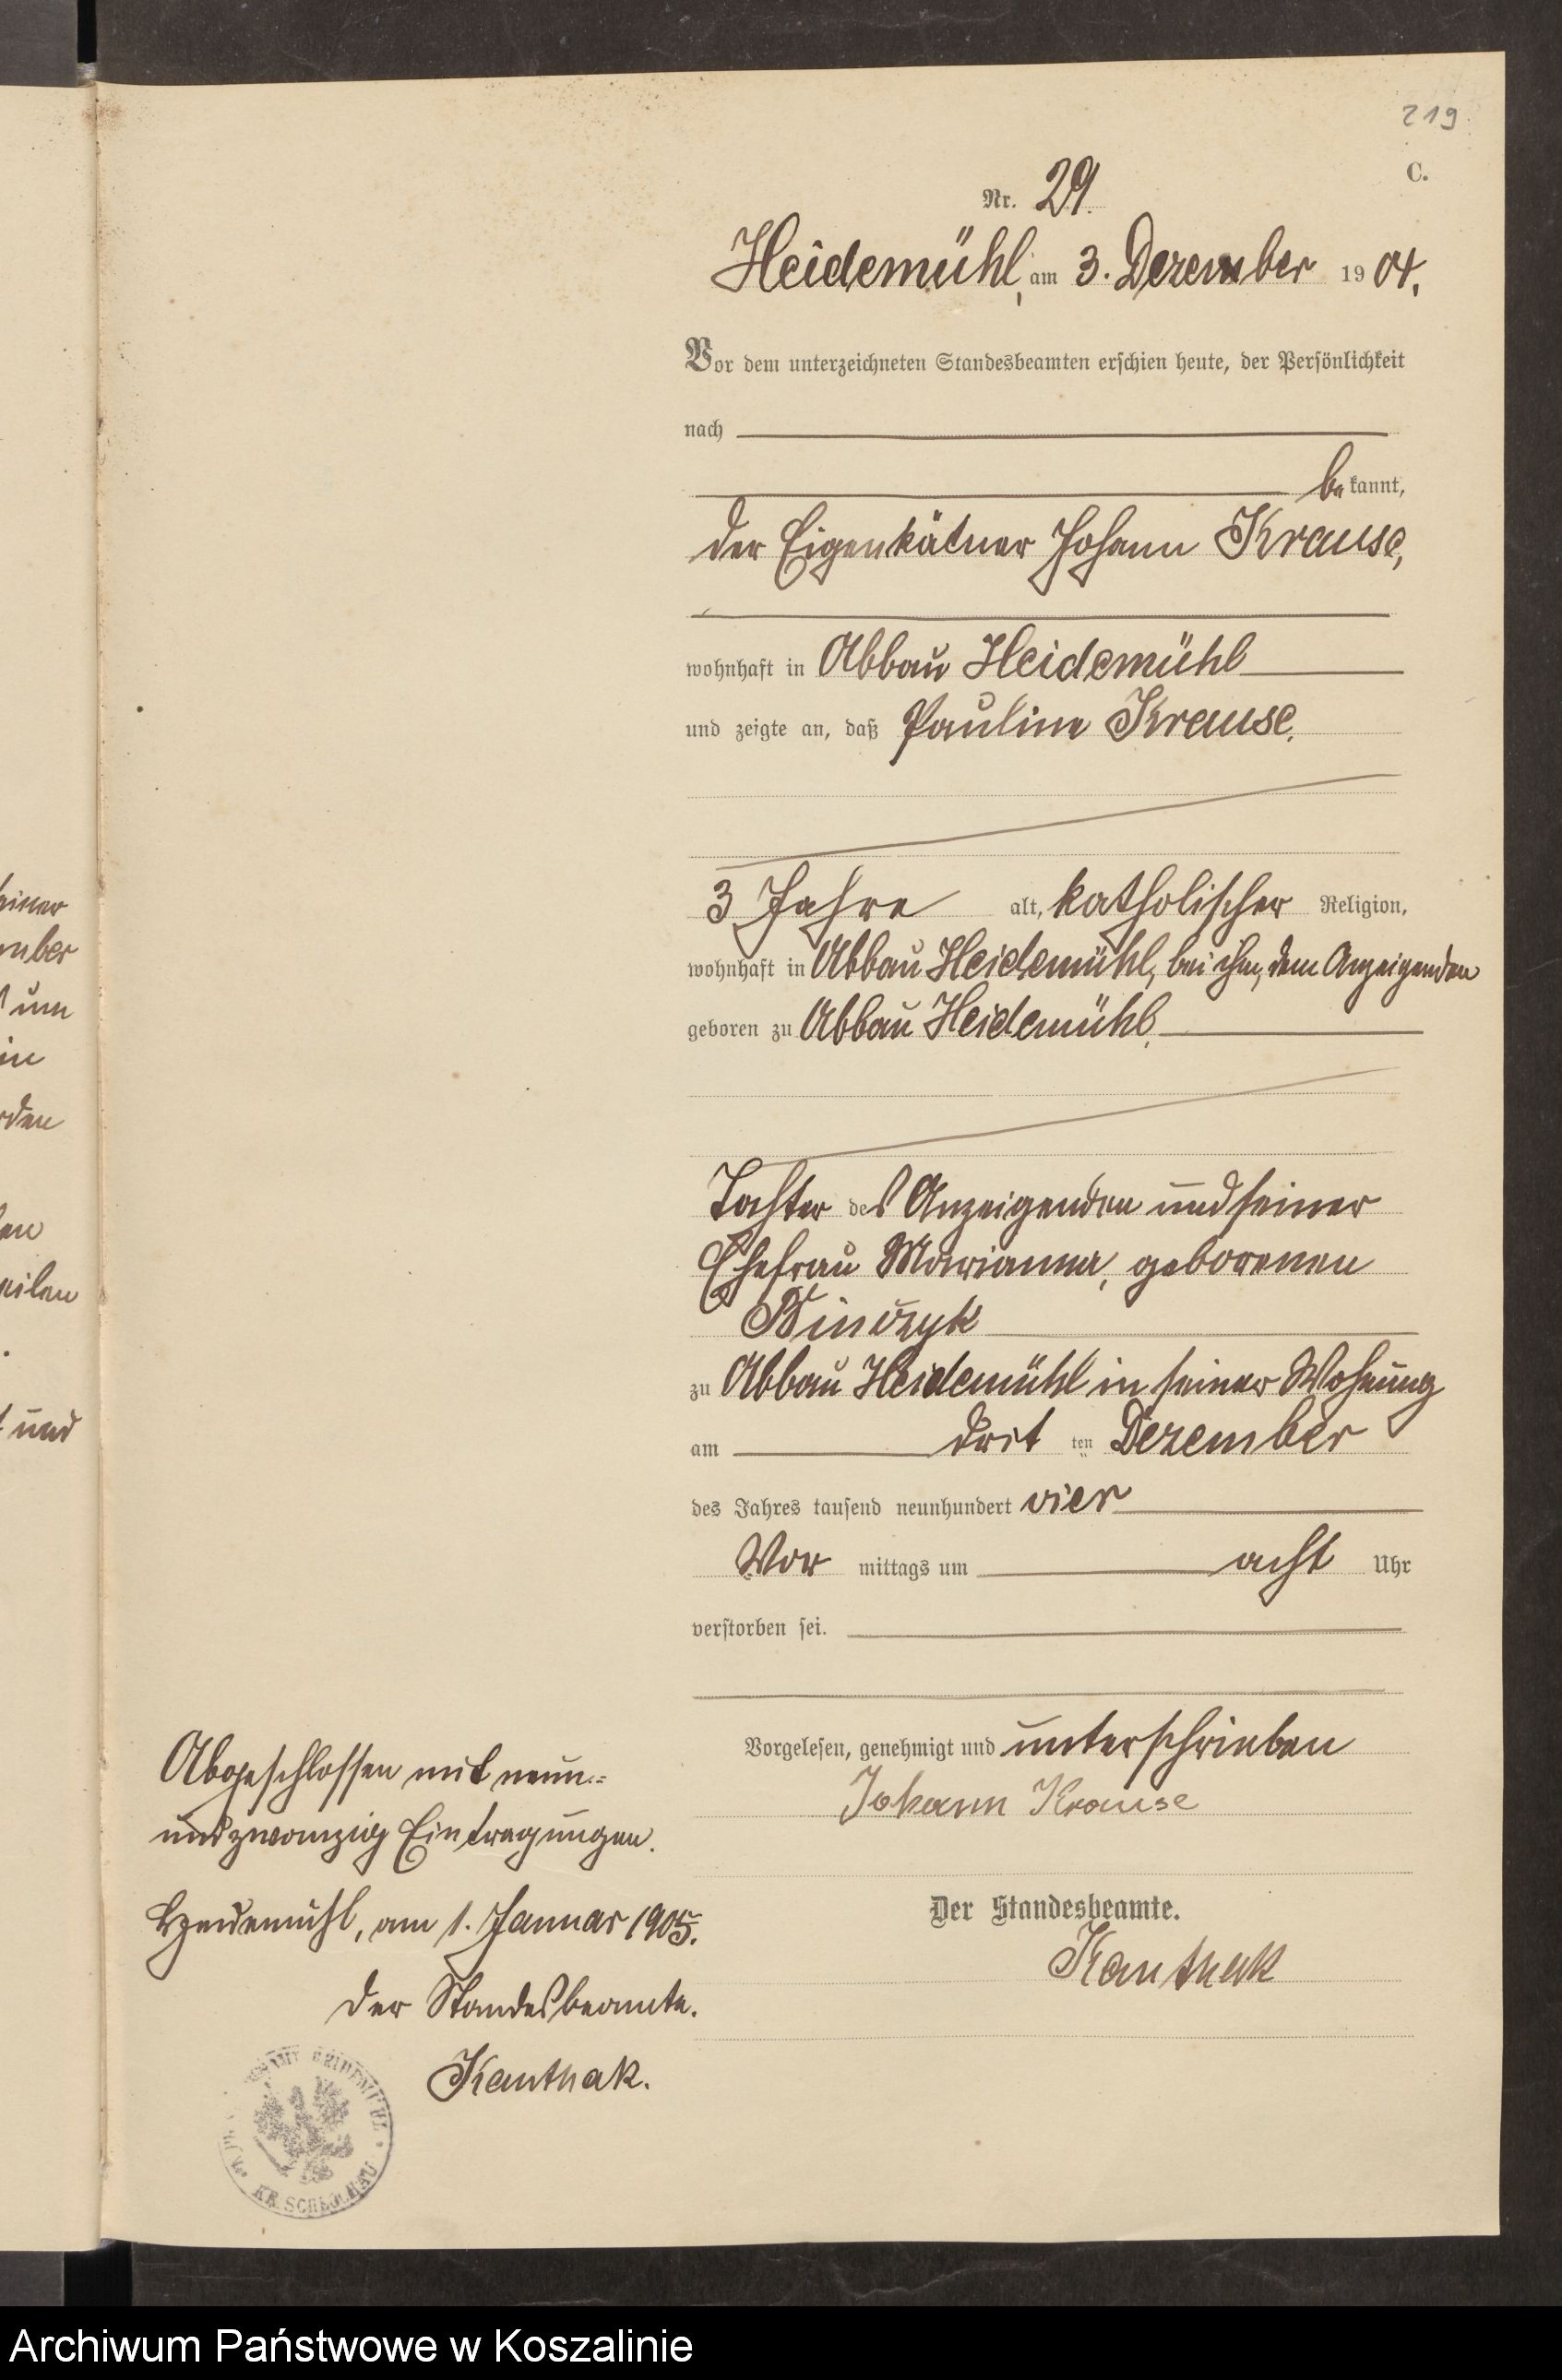 219
C.
Nr. 29.
Heidemühl, am 3. Dezember 1904.
Vor dem unterzeichneten Standesbeamten erschien heute, der Persönlichkeit
nach
bekannt,
der Eigenkätner Johann Krause,
wohnhaft in Abbau Heidemühl
und zeigte an, daß Pauline Krause,
3 Jahre alt, katholischer Religion,
wohnhaft in Abbau Heidemühl, bei ihm, dem Anzeigenden
geboren zu Abbau Heidemühl,
Tochter des Anzeigenden und seiner
Ehefrau Marianna, geborenen
Binczyk
zu Abbau Heidemühl in seiner Wohnung
am dritten Dezember
des Jahres tausend neunhundert vier
Vormittags um acht Uhr
verstorben sei.
Vorgelesen, genehmigt und unterschrieben
Johann Krause
Der Standesbeamte.
Kanthak
Abgeschlossen mit neun-
undzwanzig Eintragungen.
Heidemühl, am 1. Januar 1905.
Der Standesbeamte.
Kanthak.
HEIDEMÜHL
KR. SCHLOCHAU
einer
mber
um
in
rden
und
Archiwum Państwowe w Koszalinie